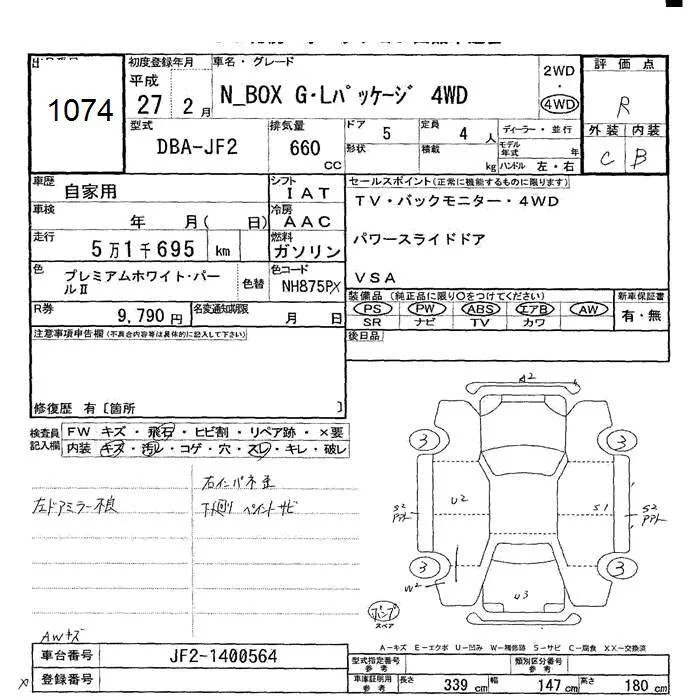 1074
初度登録年月
平成
27 2 月
車名・グレード
N_BOX G・Lパッケージ 4WD
2WD
・
4WD
評価点
R
外装 内装
C B
型式
DBA-JF2
排気量
660
CC
ドア
5
定員
4 人
形状
積載
kg
ディーラー・並行
モデル年式
年
ハンドル 左・右
車歴
自家用
シフト
IAT
車検
年 月( 日)
冷房
AAC
走行
5万1千695 km
燃料
ガソリン
色
プレミアムホワイト・パールⅡ
色替
色コード
NH875PX
R券
9,790 円
名変通知期限
月 日
セールスポイント(正常に機能するものに限ります)
TV・バックモニター・4WD
パワースライドドア
VSA
装備品(純正品に限り○をつけてください)
PS PW ABS エアB AW
SR ナビ TV カワ
新車保証書
有・無
後日品
注意事項申告欄(不具合内容等は具体的に記入して下さい)
修復歴 有〔箇所 〕
検査員
記入欄
FW キズ・飛石・ヒビ割・リペア跡・×要
内装 キズ・汚レ・コゲ・穴・スレ・キレ・破レ
左ドアミラー不良
右インパネ歪
下廻り ペイントサビ
AWキズ
A2
3
3
3
3
U2
S1
S2
PPル
S2
PPル
W2
U3
パンク
スペア
A-キズ E-エクボ U-凹み W-補修跡 S-サビ C-腐食 XX-交換済
車台番号
JF2-1400564
登録番号
型式指定番号
参考
類別区分番号
参考
車庫証明用
参考
長さ 339 cm 幅 147 cm 高さ 180 cm